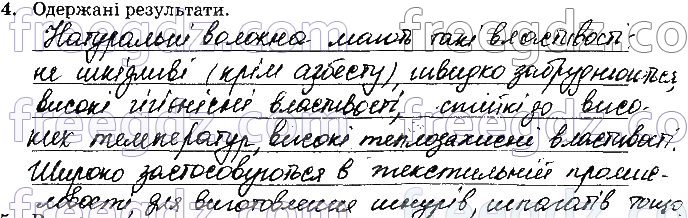 4. Одержані результати.
Натуральні волокна мають такі властивості:
не шкідливі (крім азбесту), швидко забруднюються,
високі гігієнісні властивості, стійкі до висо-
ких температур, високі теплозахисні властивості.
Широко застосовуються в текстильній промис-
ловості, для виготовлення шнурів, шпагатів тощо